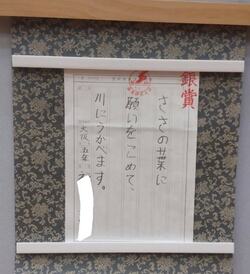 銀賞
ささの葉に
願いをこめて、
川にうかべます。
大阪 五年